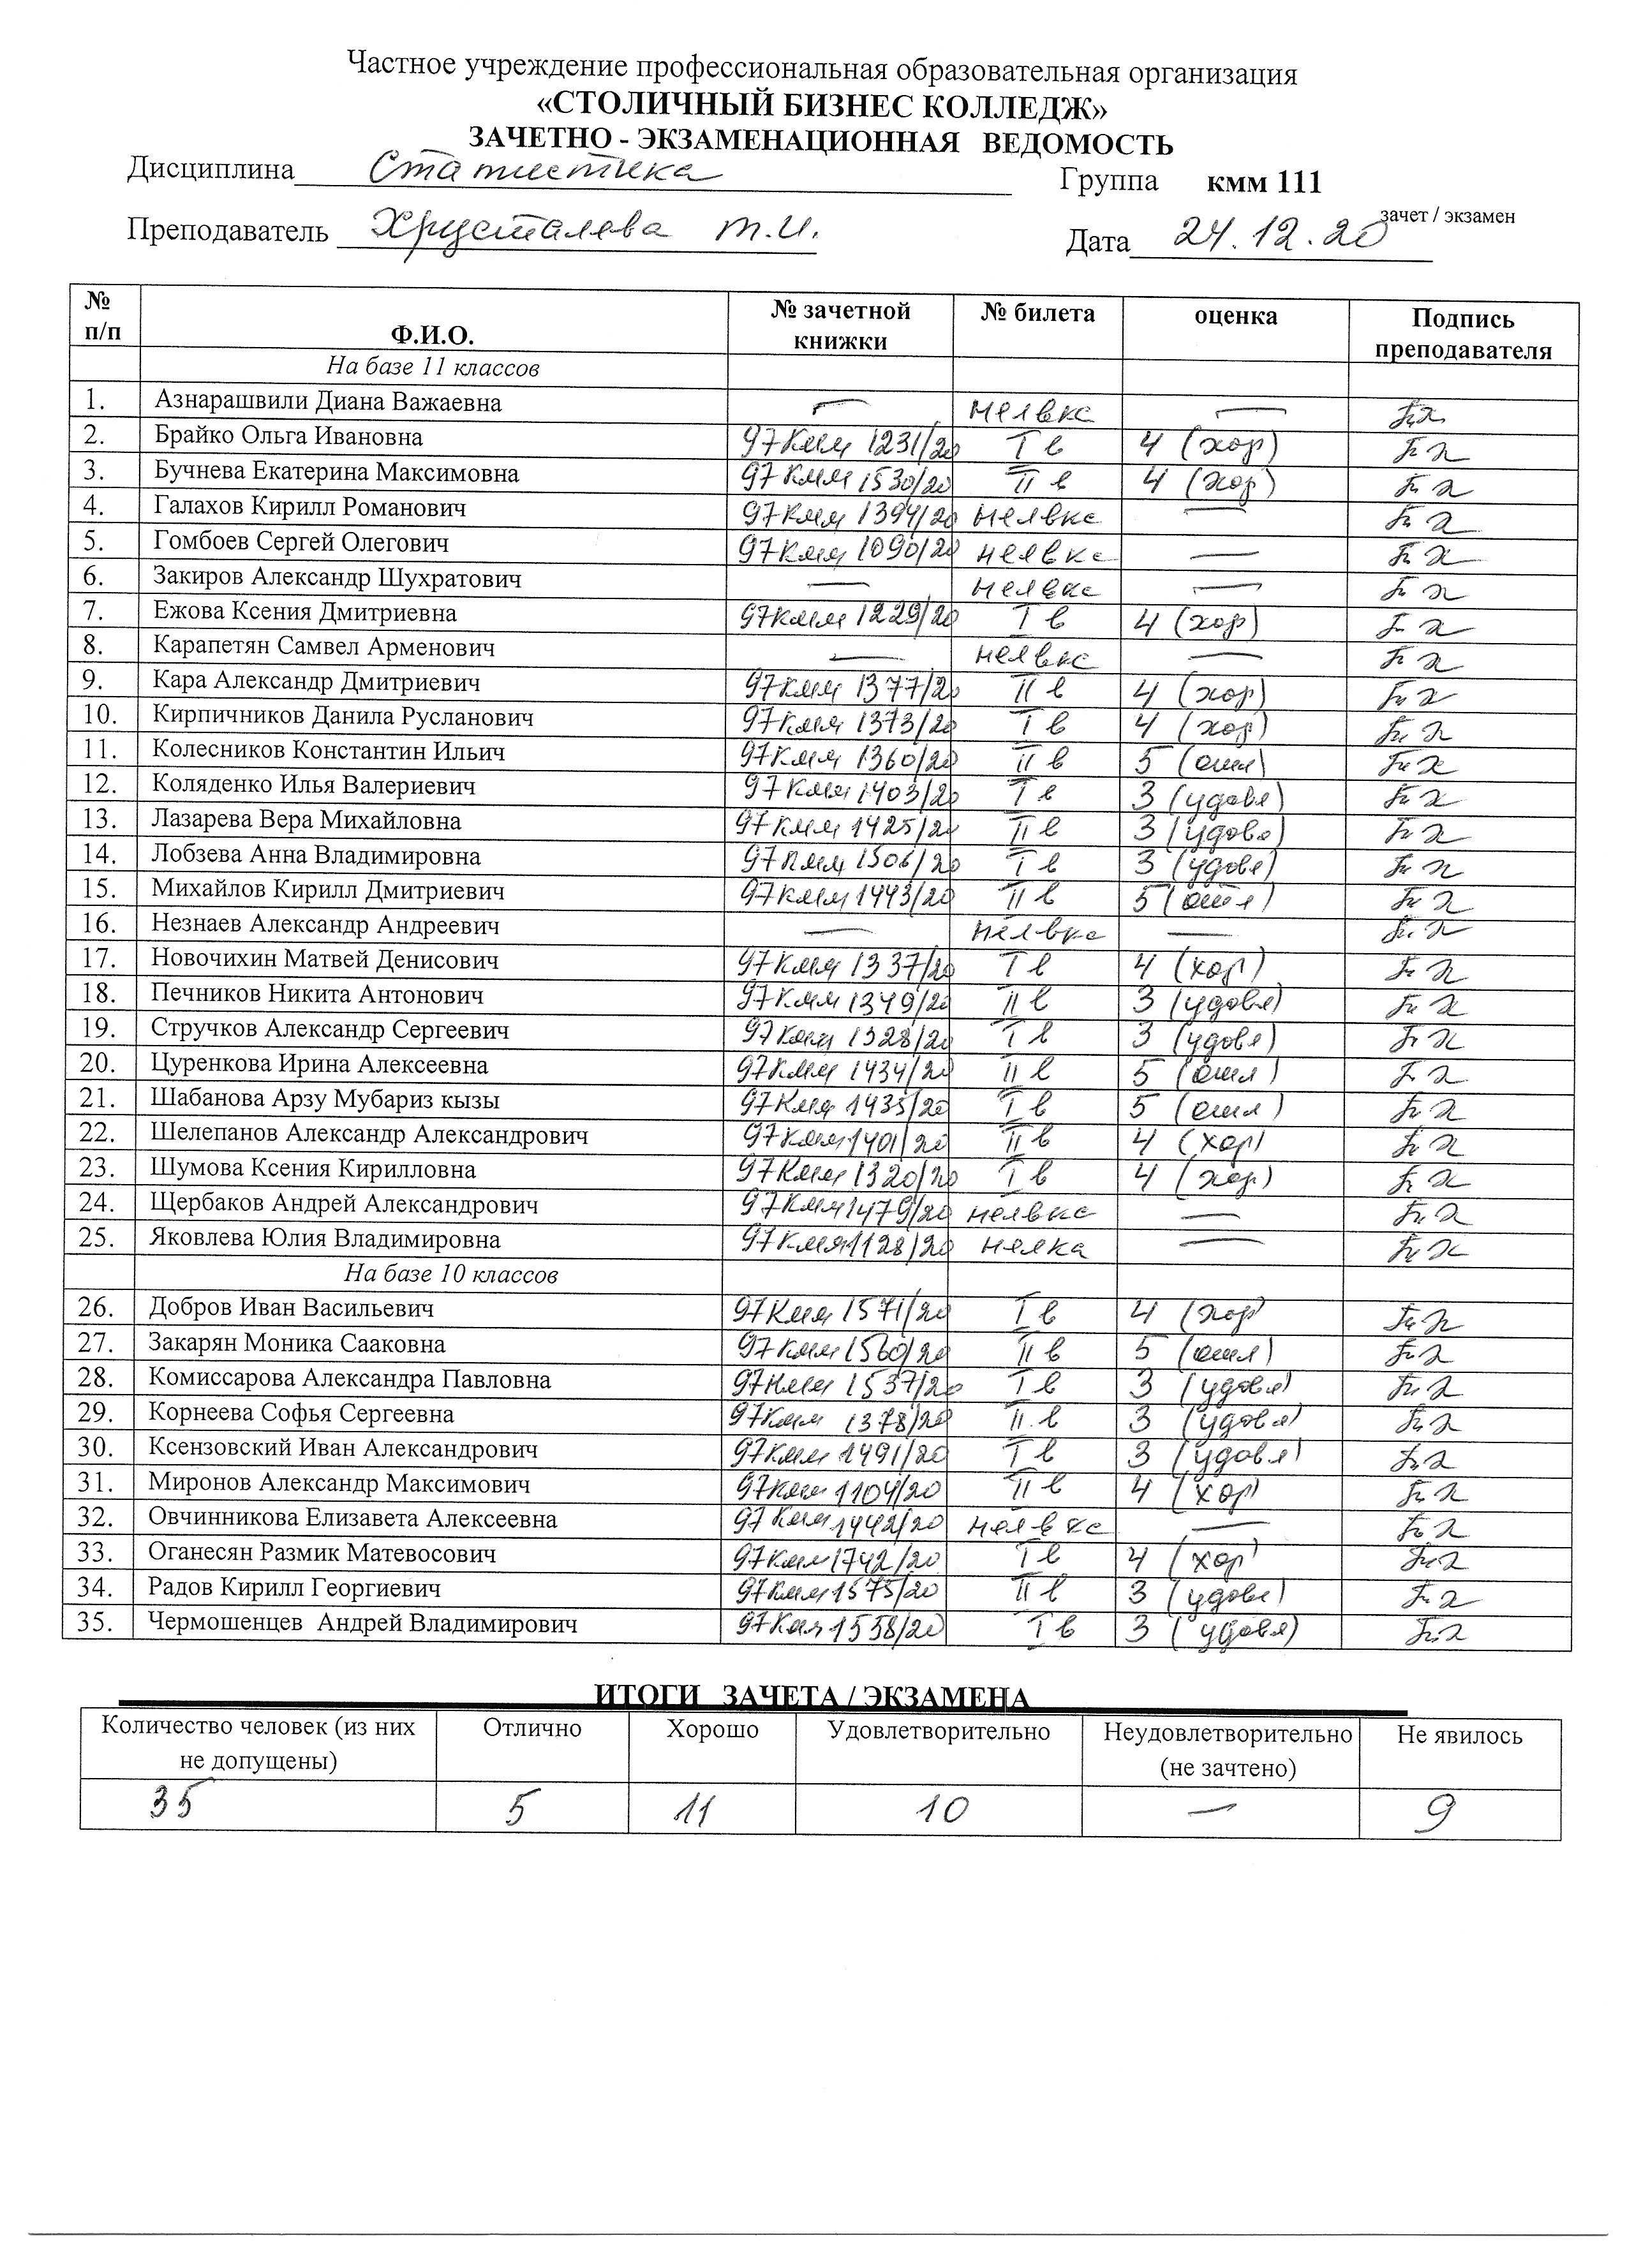 Частное учреждение профессиональная образовательная организация
«СТОЛИЧНЫЙ БИЗНЕС КОЛЛЕДЖ»
ЗАЧЕТНО - ЭКЗАМЕНАЦИОННАЯ ВЕДОМОСТЬ
Дисциплина Статистика Группа кмм 111
зачет / экзамен
Преподаватель Хрусталева Т.И. Дата 24.12.20
№ п/п Ф.И.О. № зачетной книжки № билета оценка Подпись преподавателя
На базе 11 классов
1. Азнарашвили Диана Важаевна — неявка —
2. Брайко Ольга Ивановна 97Кмм 1231/20 I в 4 (хор)
3. Бучнева Екатерина Максимовна 97Кмм 1530/20 II в 4 (хор)
4. Галахов Кирилл Романович 97Кмм 1394/20 неявка —
5. Гомбоев Сергей Олегович 97Кмм 1090/20 неявка —
6. Закиров Александр Шухратович — неявка —
7. Ежова Ксения Дмитриевна 97Кмм 1229/20 I в 4 (хор)
8. Карапетян Самвел Арменович — неявка —
9. Кара Александр Дмитриевич 97Кмм 1377/20 II в 4 (хор)
10. Кирпичников Данила Русланович 97Кмм 1373/20 I в 4 (хор)
11. Колесников Константин Ильич 97Кмм 1360/20 II в 5 (отл)
12. Коляденко Илья Валериевич 97Кмм 1403/20 I в 3 (удовл)
13. Лазарева Вера Михайловна 97Кмм 1425/20 II в 3 (удовл)
14. Лобзева Анна Владимировна 97Кмм 1506/20 I в 3 (удовл)
15. Михайлов Кирилл Дмитриевич 97Кмм 1443/20 II в 5 (отл)
16. Незнаев Александр Андреевич — неявка —
17. Новочихин Матвей Денисович 97Кмм 1337/20 I в 4 (хор)
18. Печников Никита Антонович 97Кмм 1349/20 II в 3 (удовл)
19. Стручков Александр Сергеевич 97Кмм 1328/20 I в 3 (удовл)
20. Цуренкова Ирина Алексеевна 97Кмм 1434/20 II в 5 (отл)
21. Шабанова Арзу Мубариз кызы 97Кмм 1435/20 I в 5 (отл)
22. Шелепанов Александр Александрович 97Кмм 1401/20 II в 4 (хор)
23. Шумова Ксения Кирилловна 97Кмм 1320/20 I в 4 (хор)
24. Щербаков Андрей Александрович 97Кмм 1479/20 неявка —
25. Яковлева Юлия Владимировна 97Кмм 1128/20 неяка —
На базе 10 классов
26. Добров Иван Васильевич 97Кмм 1571/20 I в 4 (хор)
27. Закарян Моника Сааковна 97Кмм 1560/20 II в 5 (отл)
28. Комиссарова Александра Павловна 97Кмм 1537/20 I в 3 (удовл)
29. Корнеева Софья Сергеевна 97Кмм 1378/20 II в 3 (удовл)
30. Ксензовский Иван Александрович 97Кмм 1491/20 I в 3 (удовл)
31. Миронов Александр Максимович 97Кмм 1104/20 II в 4 (хор)
32. Овчинникова Елизавета Алексеевна 97Кмм 1442/20 неявка —
33. Оганесян Размик Матевосович 97Кмм 1742/20 I в 4 (хор)
34. Радов Кирилл Георгиевич 97Кмм 1575/20 II в 3 (удовл)
35. Чермошенцев Андрей Владимирович 97Кмм 1558/20 I в 3 (удовл)
ИТОГИ ЗАЧЕТА / ЭКЗАМЕНА
Количество человек (из них не допущены) Отлично Хорошо Удовлетворительно Неудовлетворительно (не зачтено) Не явилось
35 5 11 10 — 9